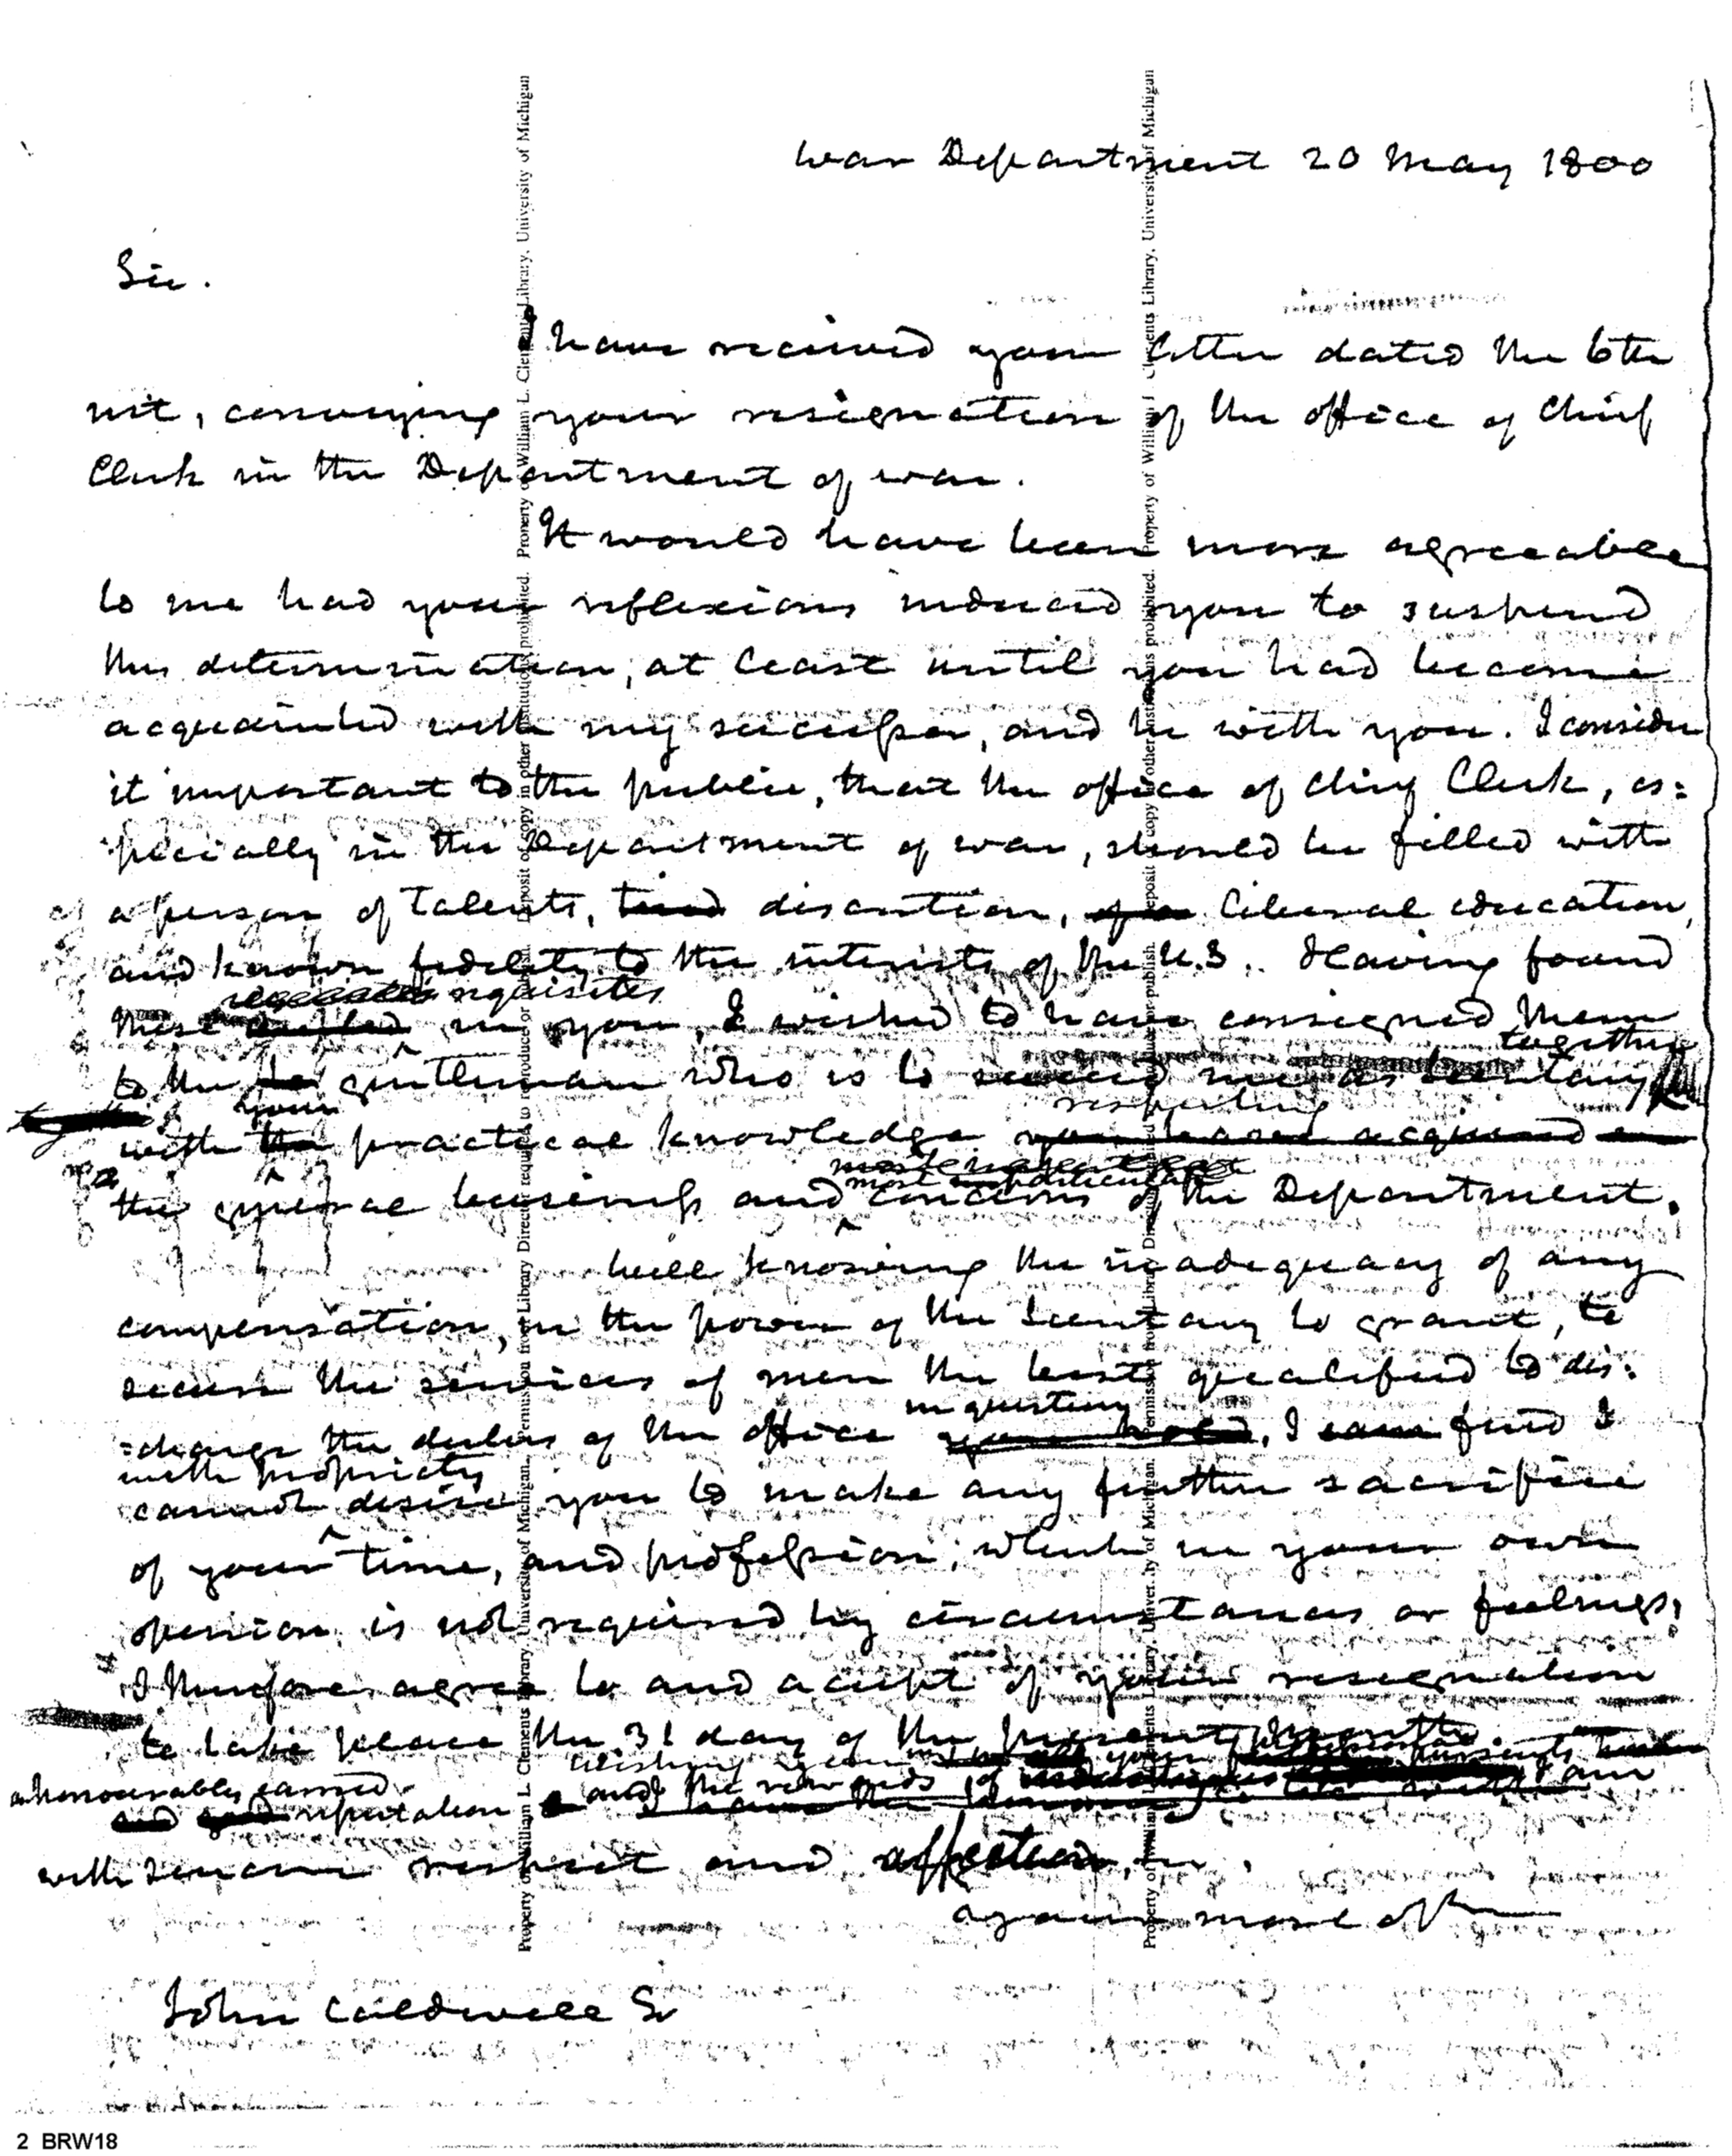 War Department 20 May 1800
Sir.
I have received your letter dated the 6th
inst, conveying your resignation of the office of Chief
Clerk in the Department of war.
It would have been more agreeable
to me had your reflexions induced you to suspend
this determination, at least until you had become
acquainted with my successor, and he with you. I consider
it important to the public, that the office of chief Clerk, es=
=pecially in the Department of war, should be filled with
a person of talents, tried discretion, of a liberal education,
and known fidelity to the interests of the U.S. Having found
requisites
these in you, I wished to have consigned them
together
to the gentleman who is to succeed me as Secretary
your respecting
with the practical knowledge you have acquired
most
the general business and concerns of the Department.
Well knowing the inadequacy of any
compensation, in the power of the Secretary to grant, to
secure the services of men the best qualified to dis=
in question
=charge the duties of the office you hold, I find I
with propriety
cannot desire you to make any further sacrifice
of your time, and profession, which in your own
opinion is not required by circumstances or feelings,
I therefore, agree to and accept of your resignation
to take place the 31 day of the present month.
wishing your pursuits
honourably earned and the rewards of I am
reputation
with sincere respect and affection,
John Caldwell
Property of William L. Clements Library, University of Michigan
Property of William L. Clements Library, University of Michigan
2 BRW18